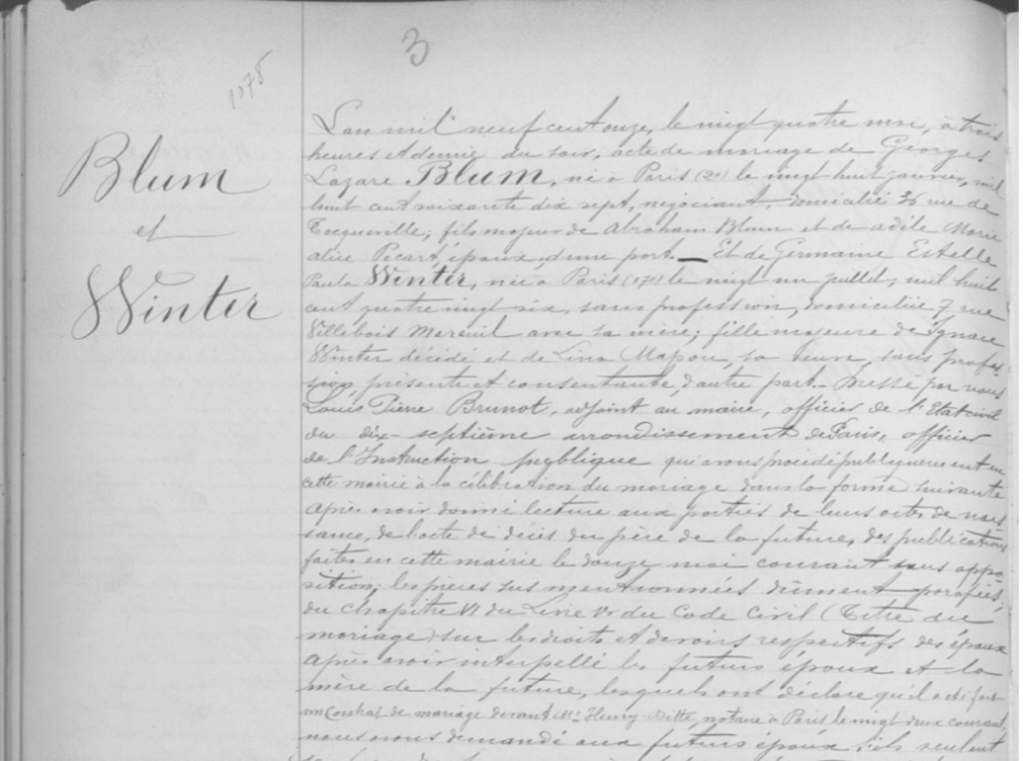 3
1078
Blum
et
Winter
L'an mil neuf cent onze, le vingt quatre mai, à trois
heures et demie du soir, acte de mariage de Georges
Lazare Blum, né à Paris (2e) le vingt huit janvier, mil
huit cent soixante dix sept, négociant, domicilié 36 rue de
Tocqueville, fils majeur de Abraham Blum et de Adèle Marie
Alice Picart, époux, d'une part. _ Et de Germaine Estelle
Paula Winter, née à Paris (17e) le vingt un juillet, mil huit
cent quatre vingt six, sans profession, domiciliée 7 rue
Villebois Mareuil avec sa mère; fille majeure de Ignace
Winter décédé et de Lina Mapou, sa veuve, sans profes-
sion, présente et consentante, d'autre part. - Dressé par nous
Louis Pierre Brunot, adjoint au maire, officier de l'Etat civil
du dix septième arrondissement de Paris, officier
de l'Instruction publique qui avons procédé publiquement en
cette mairie à la célébration du mariage dans la forme suivante
Après avoir donné lecture aux parties de leurs actes de nais
sance, de l'acte de décès du père de la future, des publications
faites en cette mairie le douze mai courant sans oppo
sition; les pièces sus mentionnées dûment parafées;
du Chapitre VI du Livre Ier du Code Civil (Titre du
mariage) sur les droits et devoirs respectifs des époux
Après avoir interpellé les futurs époux et la
mère de la future, lesquels ont déclaré qu'il a été fait
un Contrat de mariage devant Me Henry Ditte, notaire à Paris le vingt deux courant,
nous avons demandé aux futurs époux s'ils veulent